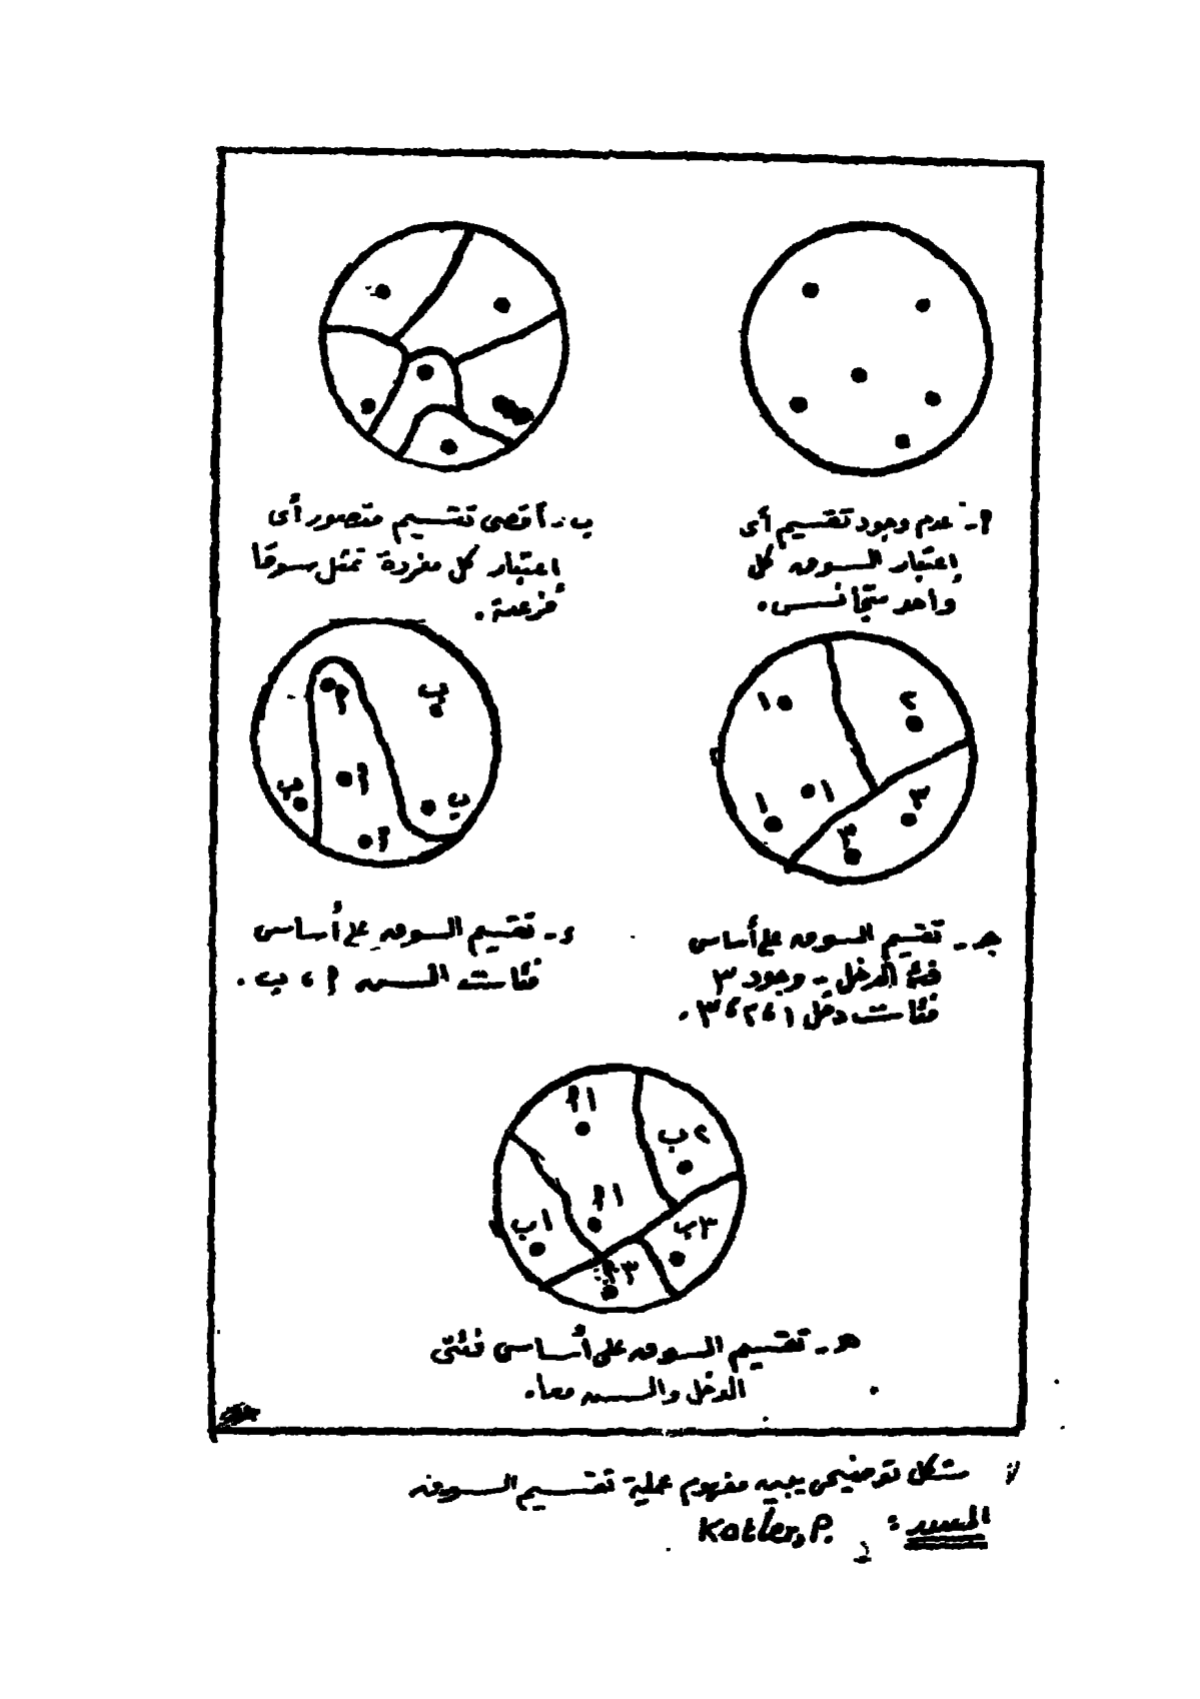 أ - عدم وجود تقسيم أى
إعتبار السوق كل
واحد متجانس.
ب - أقصى تقسيم متصور أى
اعتبار كل مفردة تمثل سوقا
فرعية.
١
٢
١
١
٣
٣
ب
أ
أ
ب
ب
أ
جـ - تقسيم السوق على أساس
فئة الدخل - وجود ٣
فئات دخل ١، ٢، ٣.
د - تقسيم السوق على أساس
فئات السن أ، ب.
١أ
٢ب
١أ
١ب
٣ب
٣أ
هـ - تقسيم السوق على أساس فئتى
الدخل والسن معا.
شكل توضيحى يبين مفهوم عملية تقسيم السوق
المصدر : Kotler, P.